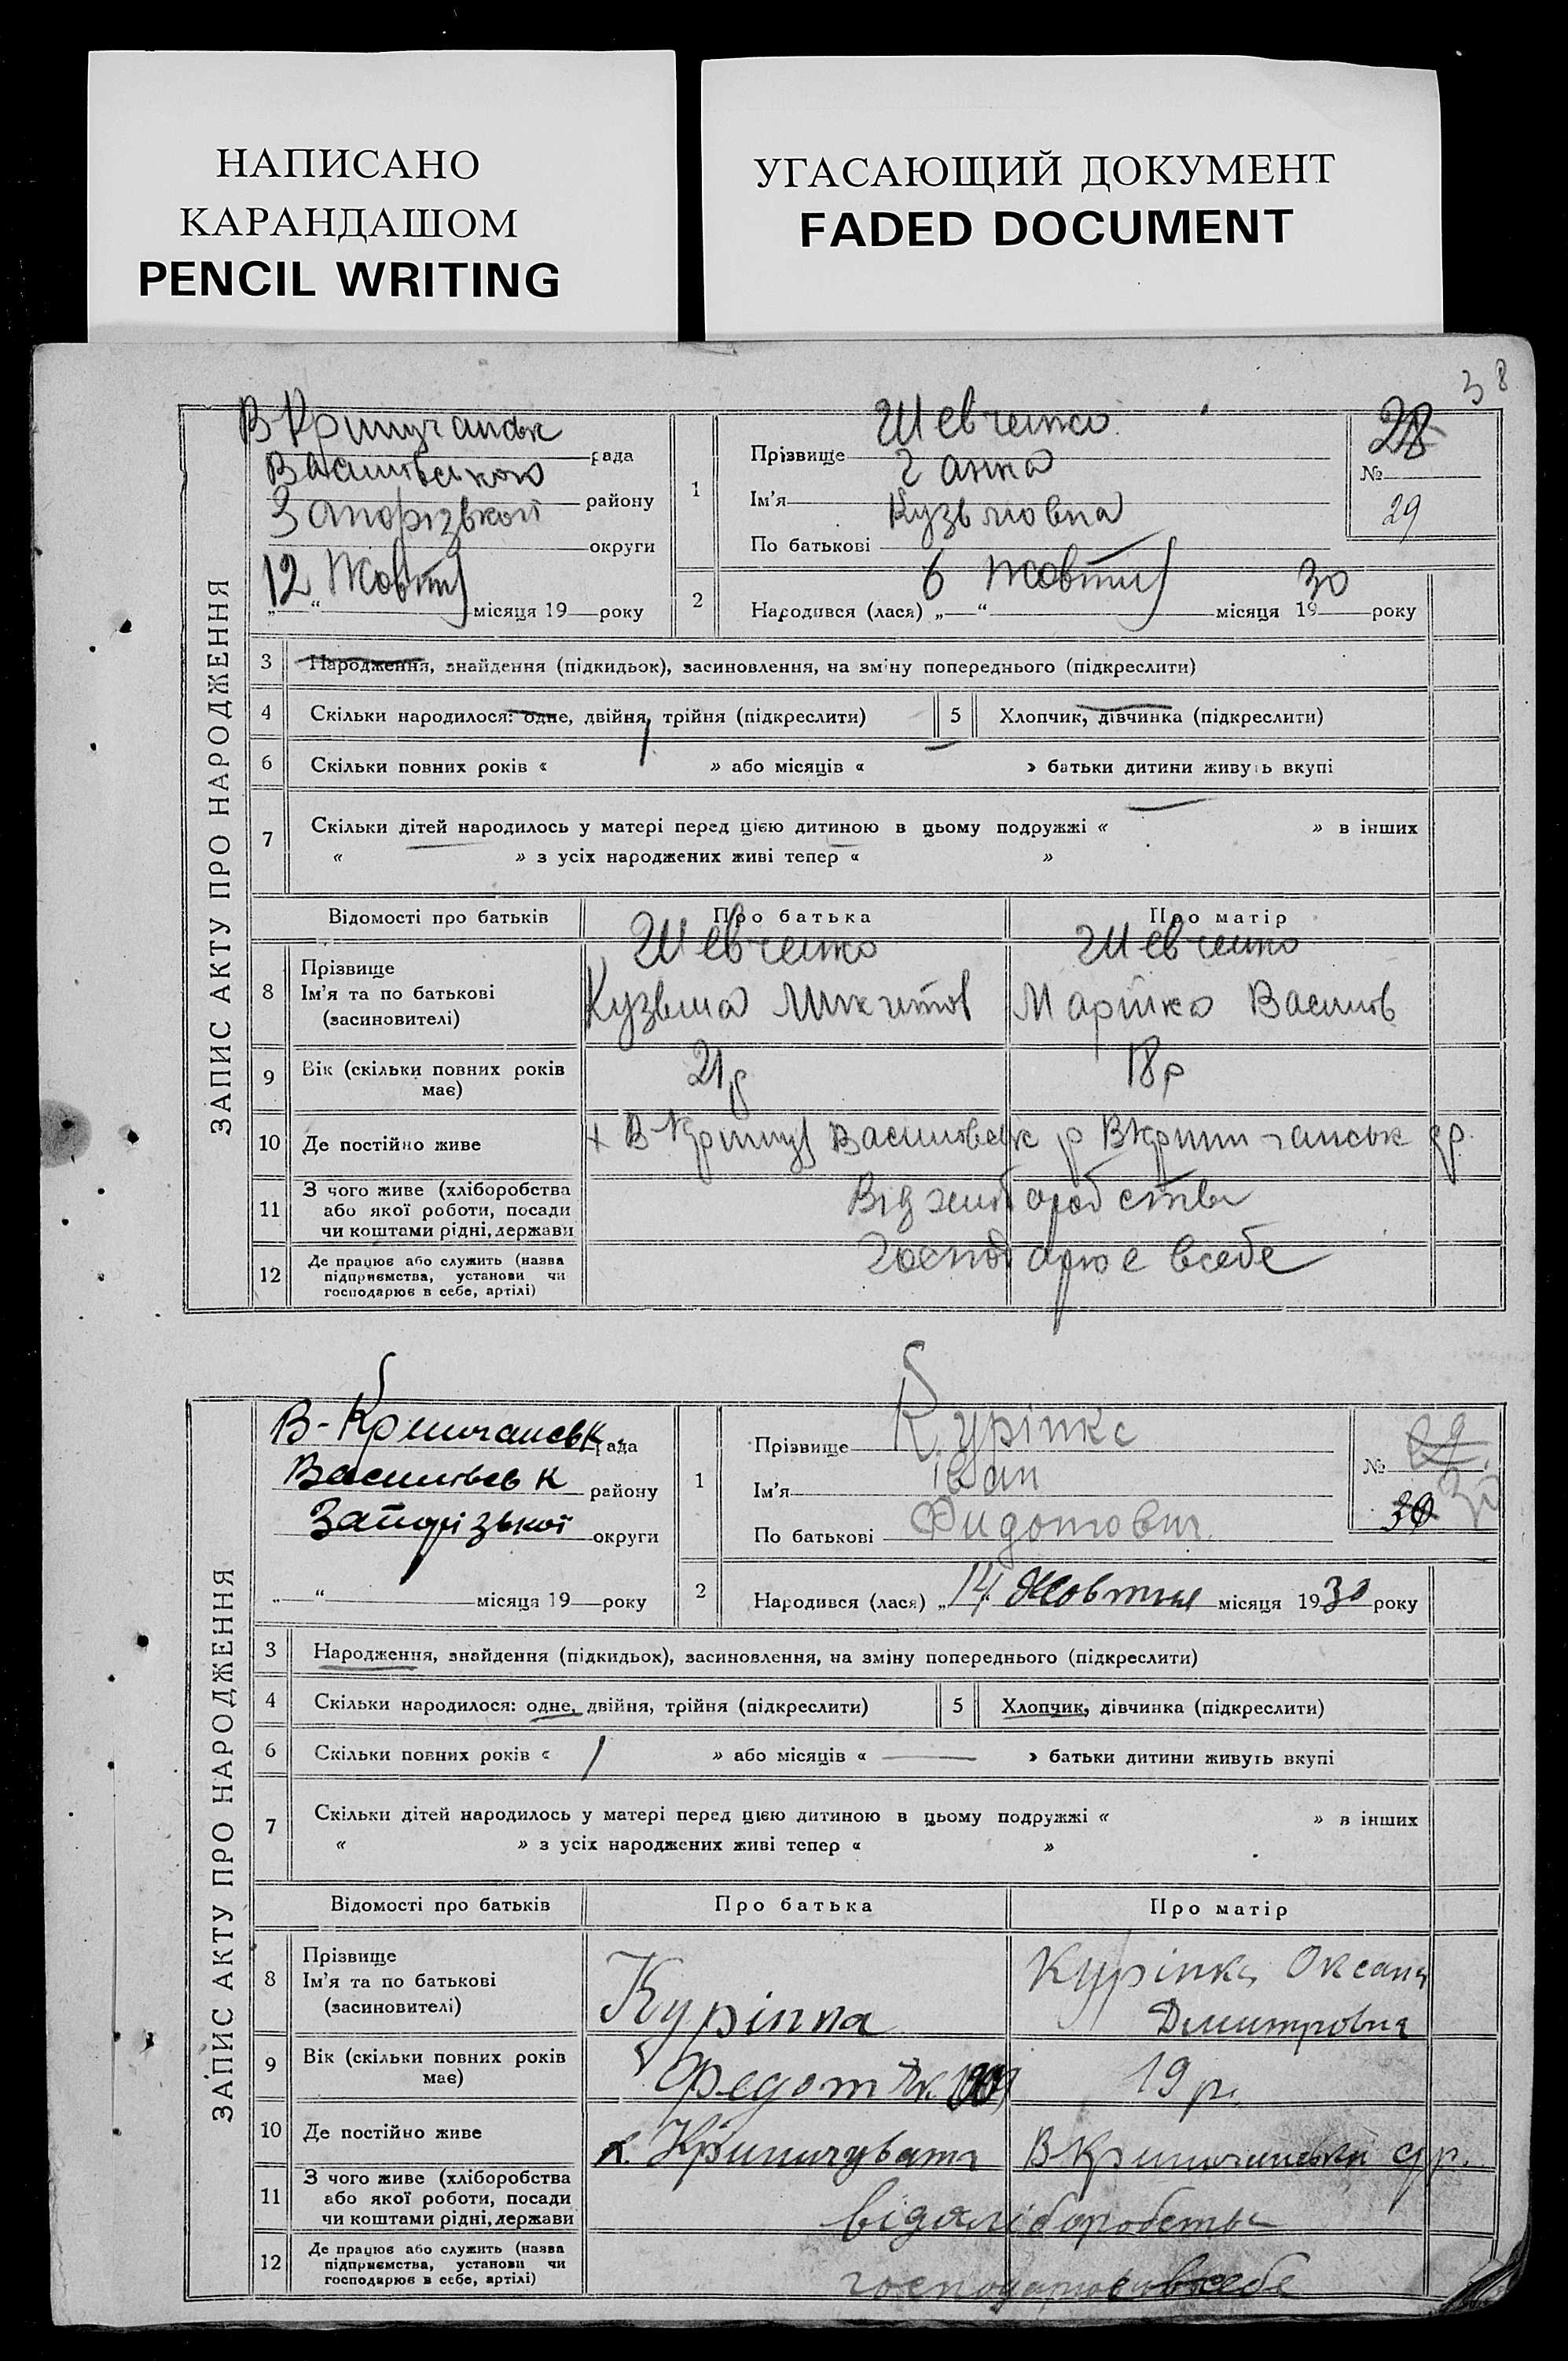 НАПИСАНО
КАРАНДАШОМ
PENCIL WRITING
УГАСАЮЩИЙ ДОКУМЕНТ
FADED DOCUMENT
38
ЗАПИС АКТУ ПРО НАРОДЖЕННЯ
рада
Василівського району
Запорізької округи
12 Жовтн місяця 19 року
1
Прізвище Шевченко
Ім'я Ганна
По батькові Кузьмовна
28
№
29
2
Народився (лася) „6“ Жовтн місяця 1930 року
3 Народження, знайдення (підкидьок), засиновлення, на зміну попереднього (підкреслити)
4 Скільки народилося: одне, двійня, трійня (підкреслити)
5 Хлопчик, дівчинка (підкреслити)
6 Скільки повних років « 1 » або місяців « — » батьки дитини живуть вкупі
7 Скільки дітей народилось у матері перед цією дитиною в цьому подружжі « — » в інших
« » з усіх народжених живі тепер « »
Відомості про батьків Про батька Про матір
8 Прізвище
Ім'я та по батькові
(засиновителі)
Шевченко
Кузьма Микитов
Шевченко
Марійка Васильов
9 Вік (скільки повних років має) 21р 18р
10 Де постійно живе
11 З чого живе (хліборобства
або якої роботи, посади
чи коштами рідні, держави
Від хліборобства
12 Де працює або служить (назва
підприємства, установи чи
господарює в себе, артілі)
Господарює всебе
ЗАПИС АКТУ ПРО НАРОДЖЕННЯ
В-Криничанськ рада
Василівськ району
Запорізької округи
„ “ місяця 19 року
1
Прізвище Курінка
Ім'я Іван
По батькові Фидотович
29
№
30
2
Народився (лася) „14 Жовтня місяця 1930 року
3 Народження, знайдення (підкидьок), засиновлення, на зміну попереднього (підкреслити)
4 Скільки народилося: одне, двійня, трійня (підкреслити)
5 Хлопчик, дівчинка (підкреслити)
6 Скільки повних років « 1 » або місяців « — » батьки дитини живуть вкупі
7 Скільки дітей народилось у матері перед цією дитиною в цьому подружжі « » в інших
« » з усіх народжених живі тепер « »
Відомості про батьків Про батька Про матір
8 Прізвище
Ім'я та по батькові
(засиновителі)
Курінка
Курінка Оксана
Дмитровна
9 Вік (скільки повних років має) Федот 19 р.
10 Де постійно живе х. Криничувата
11 З чого живе (хліборобства
або якої роботи, посади
чи коштами рідні, держави
від хліборобства
12 Де працює або служить (назва
підприємства, установи чи
господарює в себе, артілі)